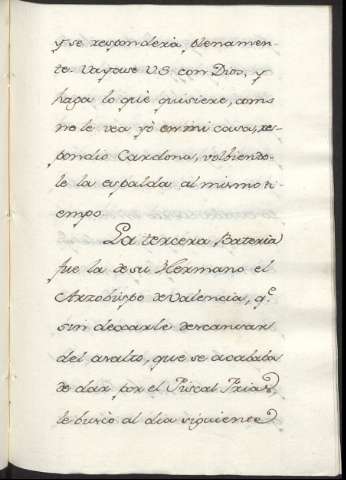 y se responderà plenamen-
te. Vayase V.S. con Dios, y
haga lo què quisiere, como
no le vea yò en mi casa, res-
pondio Cardona, volbiendo-
le la espalda al mismo ti-
empo.
La tercera Bateria
fue la de sù Hermano el
Arzobispo de Valencia, q.e
sin dexarle descansar
del asalto, que se acababa
de dar por el Fiscal Frias,
le buscò al dia siguiente